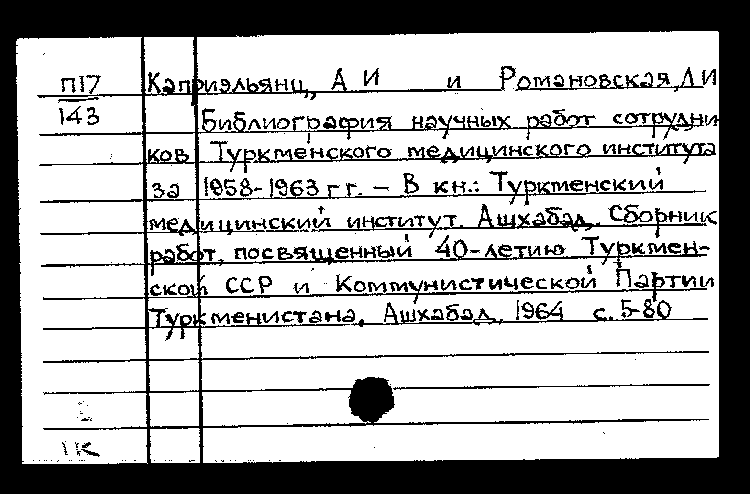 П17 Каприэльянц, А И и Романовская, Л И
143 Библиография научных работ сотрудни
ков Туркменского медицинского института
за 1958-1963 г г. – В кн.: Туркменский
медицинский институт. Ашхабад. Сборник
работ, посвященный 40-летию Туркмен-
ской ССР и Коммунистической Партии
Туркменистана. Ашхабад, 1964 с. 5-80
1К